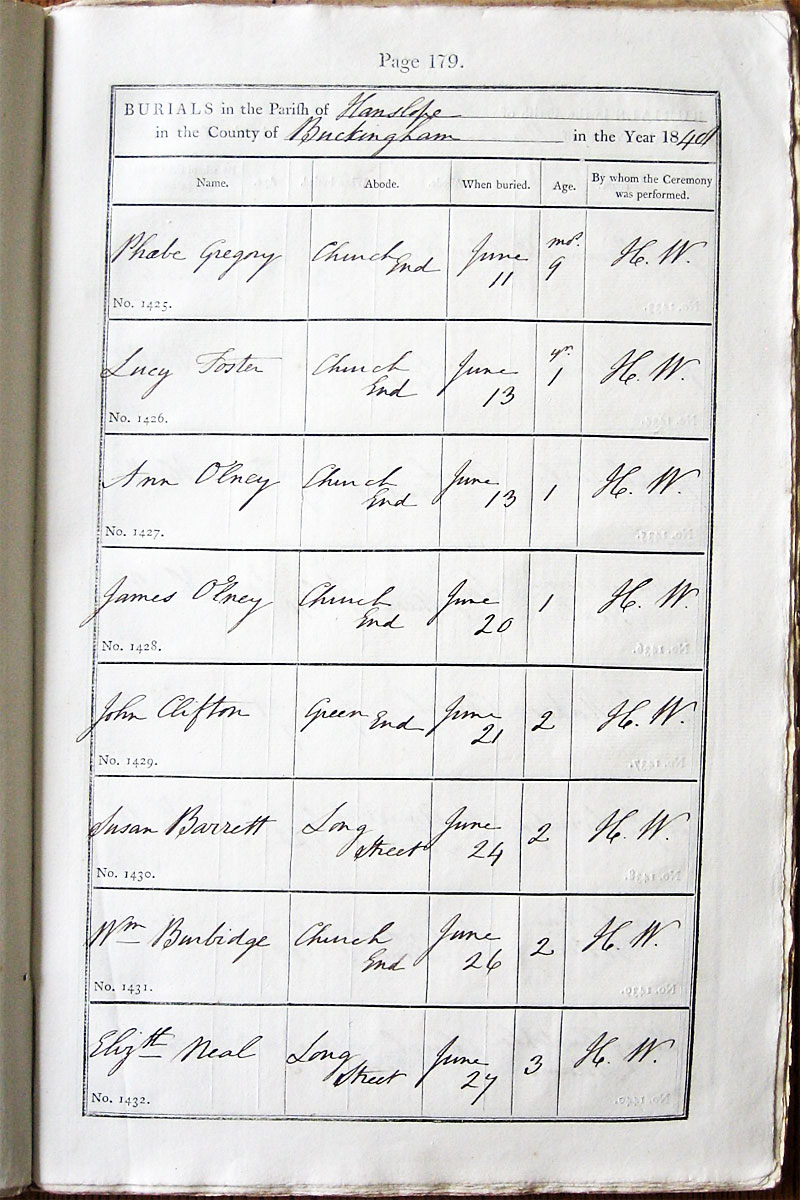 Page 179.
BURIALS in the Parish of Hanslope
in the County of Buckingham in the Year 1840
Name. Abode. When buried. Age. By whom the Ceremony was performed.
Phœbe Gregory Church End June 11 mos. 9 H. W.
No. 1425.
Lucy Foster Church End June 13 yr. 1 H. W.
No. 1426.
Ann Olney Church End June 13 1 H. W.
No. 1427.
James Olney Church End June 20 1 H. W.
No. 1428.
John Clifton Green End June 21 2 H. W.
No. 1429.
Susan Barrett Long Street June 24 2 H. W.
No. 1430.
Wm Burbidge Church End June 26 2 H. W.
No. 1431.
Elizth Neal Long Street June 27 3 H. W.
No. 1432.